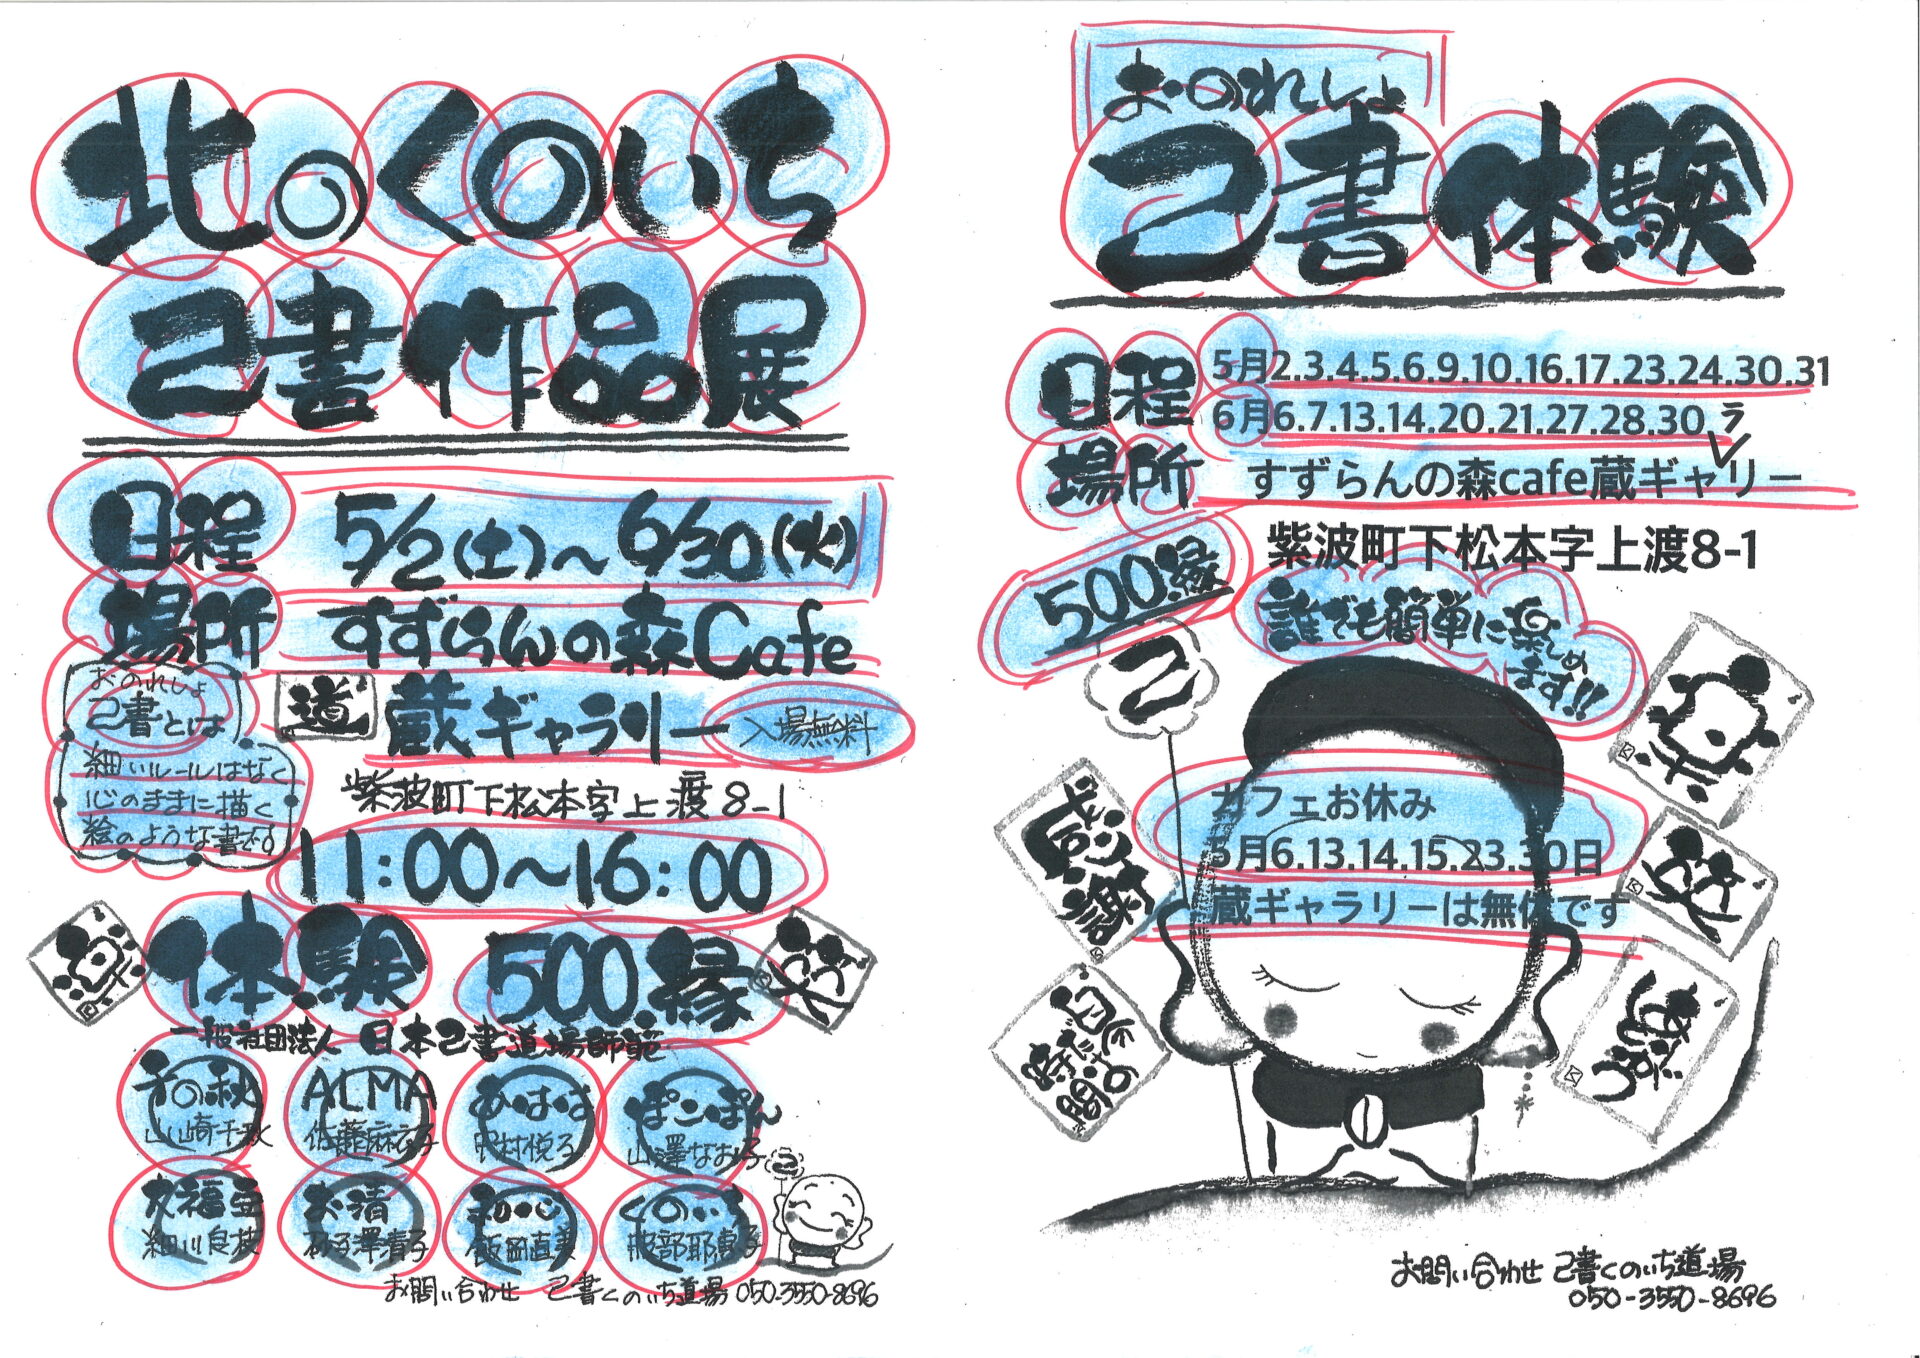 北のくのいち
己書作品展
日程 5/2(土)～6/30(火)
場所 すずらんの森Cafe
道 蔵ギャラリー 入場無料
紫波町下松本字上渡8-1
おのれしょ
己書とは
細いルールはなく
心のままに描く
絵のような書です
11:00～16:00
体験 500.縁
笑
一般社団法人 日本己書道場師範
和の秋 ALMA ぽこぽん
山崎千秋 佐藤麻衣子 中村悦子 山澤なお子
大福宝 お清 くのいち
細川良枝 砂子澤清子 飯岡直美 服部耶恵子
己
お問い合わせ 己書くのいち道場 050-3550-8696
おのれしょ
己書体験
日程 5月2.3.4.5.6.9.10.16.17.23.24.30.31
6月6.7.13.14.20.21.27.28.30
ラ
場所 すずらんの森cafe蔵ギャリー
紫波町下松本字上渡8-1
500.縁
誰でも簡単に楽しめ
ます!!
己
カフェお休み
5月6.13.14.15.23.30日
蔵ギャラリーは無休です
感謝
笑
ありがとう
お問い合わせ 己書くのいち道場
050-3550-8696